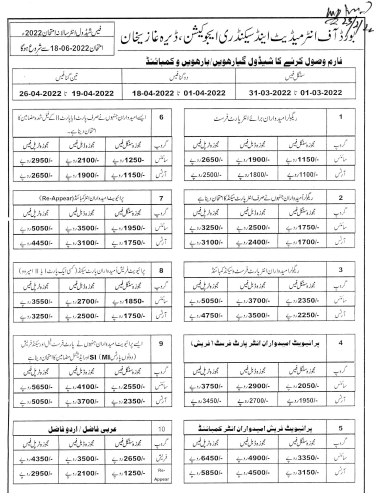 فیس شیڈول انٹر سالانہ امتحان 2022ء
امتحان 2022-06-18 سے شروع ہوگا
بورڈ آف انٹرمیڈیٹ اینڈ سیکنڈری ایجوکیشن، ڈیرہ غازیخان
فارم وصول کرنے کا شیڈول گیارھویں/بارھویں و کمبائنڈ
سنگل فیس دوگنا فیس تین گنا فیس
01-03-2022 تا 31-03-2022 01-04-2022 تا 18-04-2022 19-04-2022 تا 26-04-2022
1 ریگولر امیدواران برائے انٹر پارٹ فرسٹ
گروپ مجوزہ سنگل فیس مجوزہ ڈبل فیس مجوزہ ٹرپل فیس
سائنس 1150/- روپے 1900/- روپے 2650/- روپے
آرٹس 1100/- روپے 1800/- روپے 2500/- روپے
2 ریگولر امیدواران جنہوں نے صرف انٹر پارٹ سیکنڈ کا امتحان دینا ہے
گروپ مجوزہ سنگل فیس مجوزہ ڈبل فیس مجوزہ ٹرپل فیس
سائنس 1750/- روپے 2500/- روپے 3250/- روپے
آرٹس 1700/- روپے 2400/- روپے 3100/- روپے
3 ریگولر امیدواران انٹر پارٹ فرسٹ و سیکنڈ کمبائنڈ
گروپ مجوزہ سنگل فیس مجوزہ ڈبل فیس مجوزہ ٹرپل فیس
سائنس 2350/- روپے 3700/- روپے 5050/- روپے
آرٹس 2250/- روپے 3500/- روپے 4750/- روپے
4 پرائیویٹ امیدواران انٹر پارٹ فرسٹ (فریش)
گروپ مجوزہ سنگل فیس مجوزہ ڈبل فیس مجوزہ ٹرپل فیس
سائنس 2050/- روپے 2900/- روپے 3750/- روپے
آرٹس 1950/- روپے 2700/- روپے 3450/- روپے
5 پرائیویٹ فریش امیدواران انٹر کمبائنڈ
گروپ مجوزہ سنگل فیس مجوزہ ڈبل فیس مجوزہ ٹرپل فیس
سائنس 3350/- روپے 4900/- روپے 6450/- روپے
آرٹس 3150/- روپے 4500/- روپے 5850/- روپے
6 ایسے امیدواران جنہوں نے صرف پارٹ I یا پارٹ II کے فیل شدہ مضامین کا امتحان دینا ہے
گروپ مجوزہ سنگل فیس مجوزہ ڈبل فیس مجوزہ ٹرپل فیس
سائنس 1250/- روپے 2100/- روپے 2950/- روپے
آرٹس 1150/- روپے 1900/- روپے 2650/- روپے
7 پرائیویٹ امیدواران انٹر کمبائنڈ (Re-Appear)
گروپ مجوزہ سنگل فیس مجوزہ ڈبل فیس مجوزہ ٹرپل فیس
سائنس 1950/- روپے 3500/- روپے 5050/- روپے
آرٹس 1750/- روپے 3100/- روپے 4450/- روپے
8
گروپ مجوزہ سنگل فیس مجوزہ ڈبل فیس مجوزہ ٹرپل فیس
سائنس 1850/- روپے 2700/- روپے 3550/- روپے
آرٹس 1750/- روپے 2500/- روپے 3250/- روپے
9
گروپ مجوزہ سنگل فیس مجوزہ ڈبل فیس مجوزہ ٹرپل فیس
سائنس 2550/- روپے 4100/- روپے 5650/- روپے
آرٹس 2350/- روپے 3700/- روپے 5050/- روپے
10 عربی فاضل / اردو فاضل
گروپ مجوزہ سنگل فیس مجوزہ ڈبل فیس مجوزہ ٹرپل فیس
فریش 2650/- روپے 3500/- روپے 4350/- روپے
Re-Appear 1250/- روپے 2100/- روپے 2950/- روپے